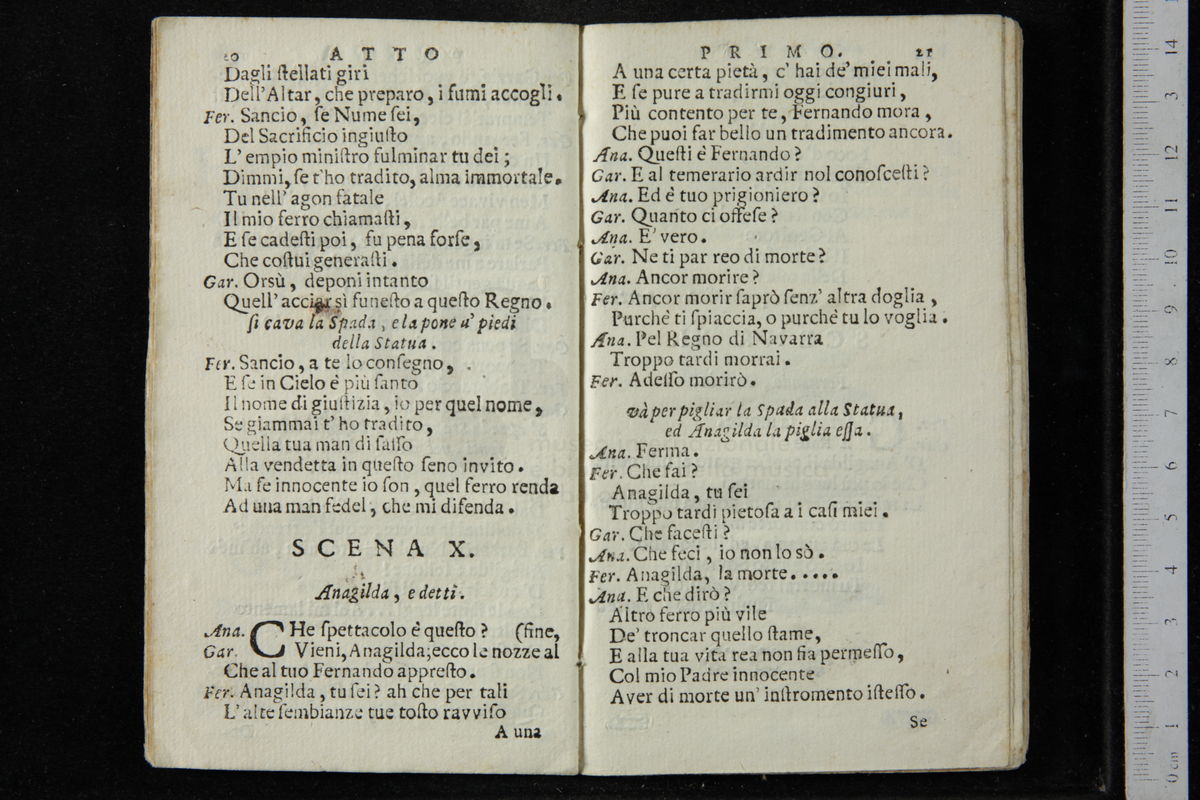 20 ATTO
Dagli ſtellati giri
Dell'Altar, che preparo, i fumi accogli.
Fer. Sancio, ſe Nume ſei,
Del Sacrificio ingiuſto
L' empio miniſtro fulminar tu dei;
Dimmi, ſe t'ho tradito, alma immortale.
Tu nell' agon fatale
Il mio ferro chiamaſti,
E ſe cadeſti poi, fu pena forſe,
Che coſtui generaſti.
Gar. Orsù, deponi intanto
Quell' acciar sì funeſto a queſto Regno.
ſi cava la Spada, e la pone a' piedi
della Statua.
Fer. Sancio, a te lo conſegno,
E ſe in Cielo è più ſanto
Il nome di giuſtizia, io per quel nome,
Se giammai t' ho tradito,
Quella tua man di ſaſſo
Alla vendetta in queſto ſeno invito.
Ma ſe innocente io ſon, quel ferro renda
Ad una man fedel, che mi difenda.
SCENA X.
Anagilda, e detti.
Ana. CHe ſpettacolo è queſto? (fine,
Gar. Vieni, Anagilda; ecco le nozze al
Che al tuo Fernando appreſto.
Fer. Anagilda, tu ſei? ah che per tali
L' alte ſembianze tue toſto ravviſo
A una
PRIMO. 21
A una certa pietà, c' hai de' miei mali,
E ſe pure a tradirmi oggi congiuri,
Più contento per te, Fernando mora,
Che puoi far bello un tradimento ancora.
Ana. Queſti è Fernando?
Gar. E al temerario ardir nol conoſceſti?
Ana. Ed è tuo prigioniero?
Gar. Quanto ci offeſe?
Ana. E' vero.
Gar. Ne ti par reo di morte?
Ana. Ancor morire?
Fer. Ancor morir ſaprò ſenz' altra doglia,
Purchè ti ſpiaccia, o purchè tu lo voglia.
Ana. Pel Regno di Navarra
Troppo tardi morrai.
Fer. Adeſſo morirò.
và per pigliar la Spada alla Statua,
ed Anagilda la piglia eſſa.
Ana. Ferma.
Fer. Che fai?
Anagilda, tu ſei
Troppo tardi pietoſa a i caſi miei.
Gar. Che faceſti?
Ana. Che feci, io non lo sò.
Fer. Anagilda, la morte.....
Ana. E che dirò?
Altro ferro più vile
De' troncar quello ſtame,
E alla tua vita rea non ſia permeſſo,
Col mio Padre innocente
Aver di morte un' inſtromento iſteſſo.
Se